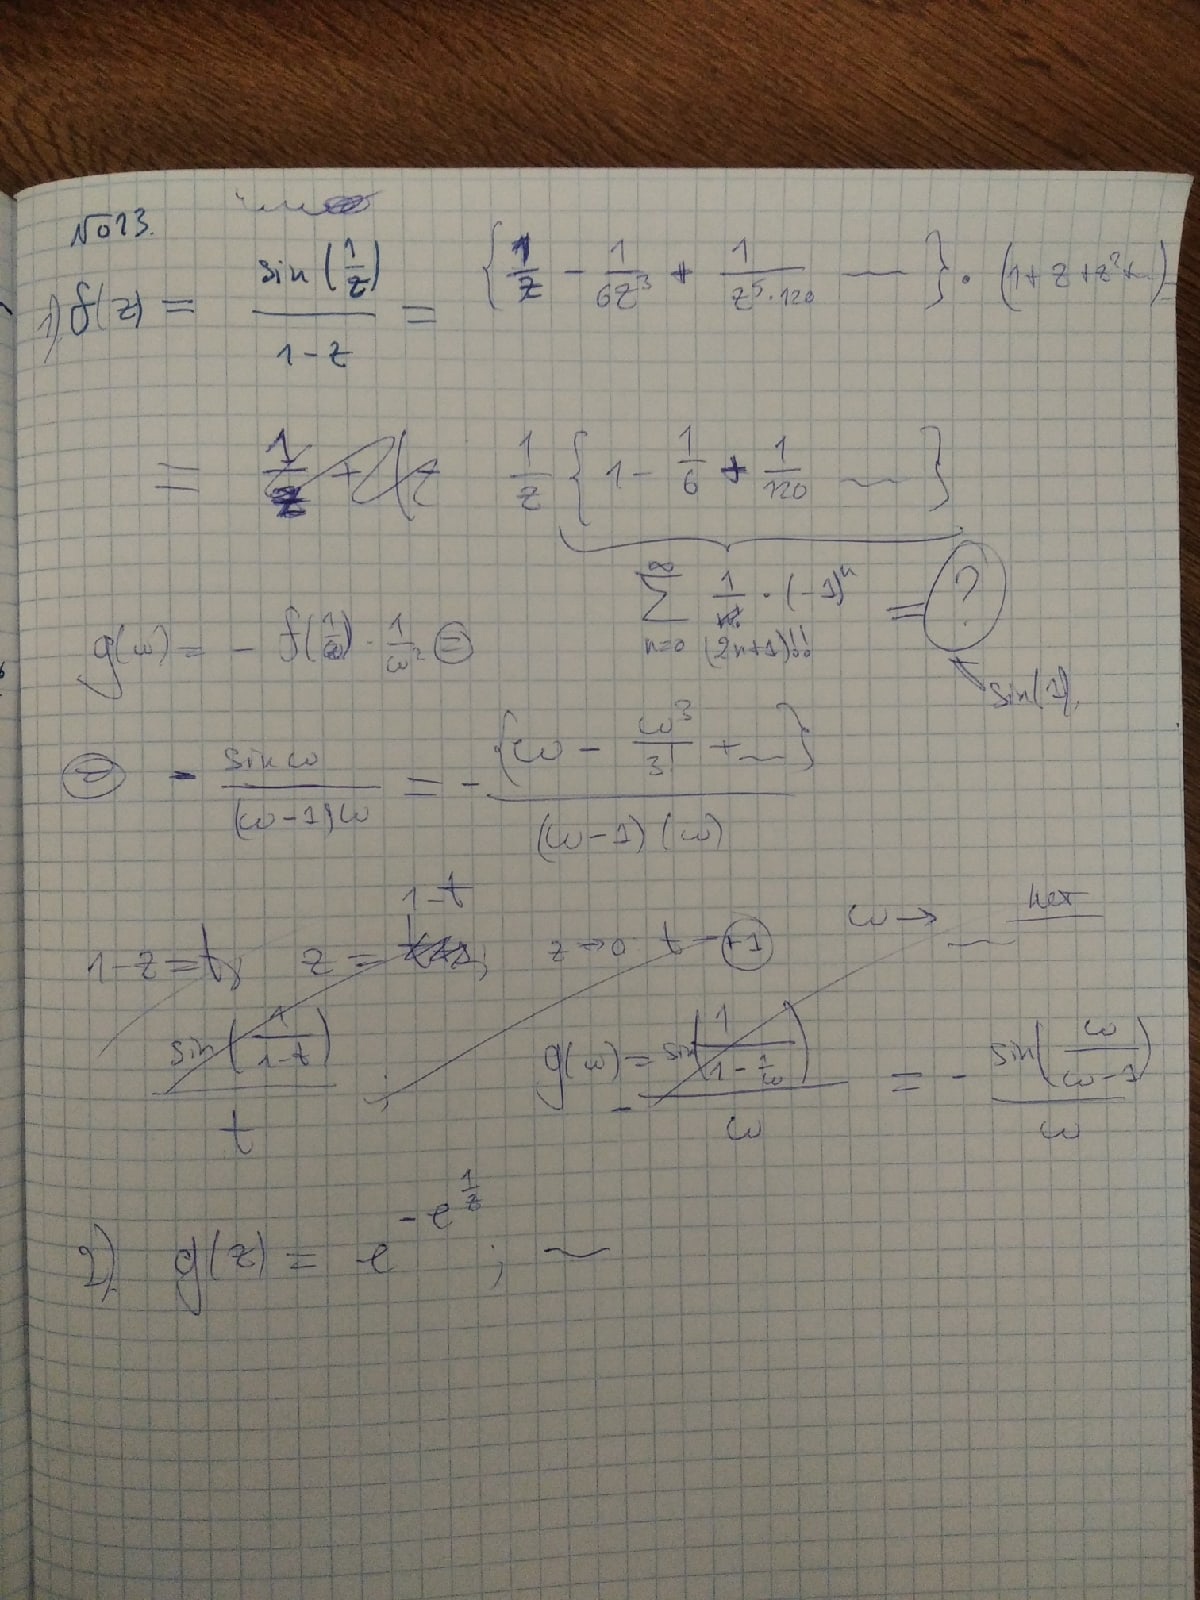 №13.
1) f(z) = sin(1/z) / (1-z) = {1/z - 1/(6z³) + 1/(z⁵·120) ...} · (1+z+z²+...) =
= 1/z {1 - 1/6 + 1/120 ...}
∑_{n=0}^{∞} 1/(2n+1)!! · (-1)ⁿ = ?
sin(1).
g(ω) = - f(1/ω) · 1/ω² =
= - sin ω / ((ω-1)ω) = - {ω - ω³/3! + ...} / ((ω-1)(ω))
1-z=t, z = 1-t; z→0 t→+1 ω→ нет
sin(1/(1-t)) / t ; g(ω) = - sin(1/(1-1/ω)) / ω = - sin(ω/(ω-1)) / ω
2) g(z) = e^{-e^{1/z}} ; ~